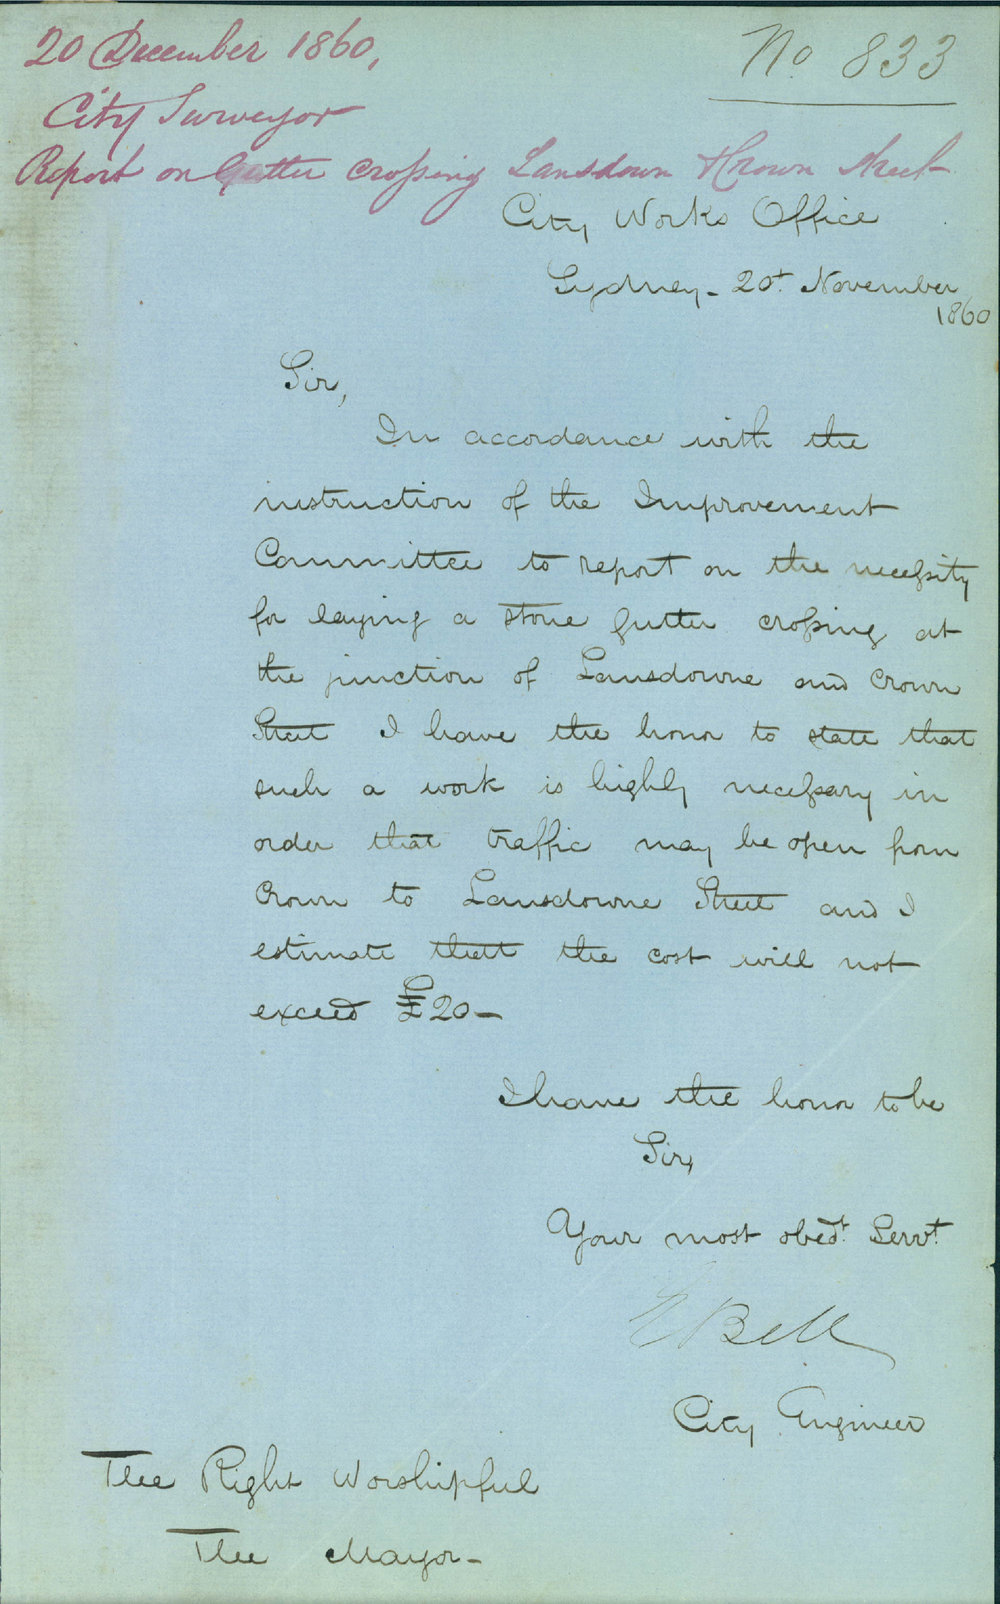 20 December 1860,
No 833
City Surveyor
Report on Gutter crossing Lansdown & Crown Street
City Works Office
Sydney - 20t. November
1860
Sir,
In accordance with the
instruction of the Improvement
Committee to report on the necessity
for laying a stone gutter crossing at
the junction of Lansdowne and Crown
Street I have the honor to state that
such a work is highly necessary in
order that traffic may be open from
Crown to Lansdowne Street and I
estimate that the cost will not
exceed £20 -
I have the honor to be
Sir,
Your most obedt. Servt.
E Bell
City Engineer
The Right Worshipful
The Mayor -